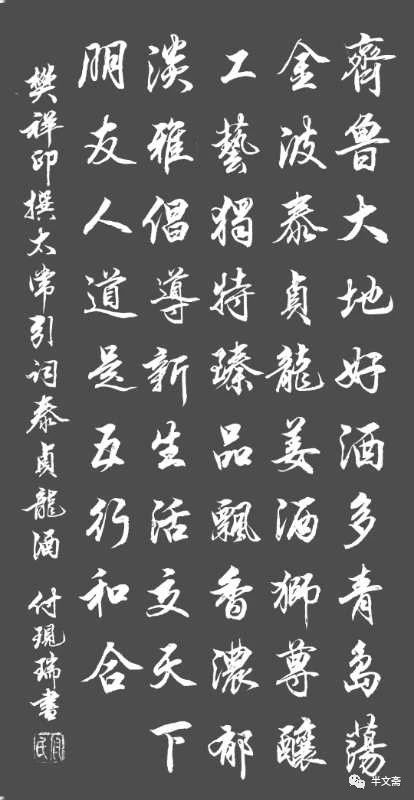 齊魯大地好酒多青島蕩
金波泰貞龍姜酒獅尊釀
工藝獨特臻品飄香濃郁
淡雅倡導新生活交天下
朋友人道是五行和合
樊祥印撰太常引词泰貞龍酒 付現瑞書
半文斋